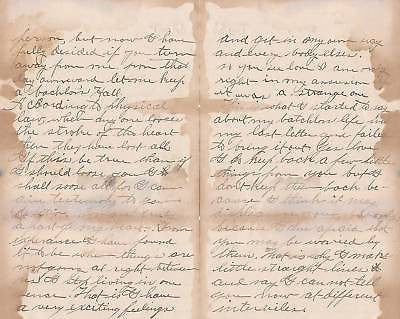 person, but now I have
fully decided if you turn
away from me from that
day onward let me keep
a bachlor's Hall.
According to physical
law when any one looses
the stroke of the heart
then they were lost all
If this be true then if
I should loose you I
shall loose all for I can
a part of my
experiance I have found
it to be when things are
not going at right between
us I stop living in one
sence. That is I have
a very exciting feelings
and get in my own way
and every body elses.
so you see love I am not
right in my
it was a strange one
what I started to say
about my batchlors life in
my last letter you failed
to bring it out. Yes love
I do keep back a few little
things from you but I
don't keep them back be-
cause I think it may
because I am afraid that
you may be worried by
them. That is why I make
little straight lines &
and say I can not tell
you now at different
intervales.